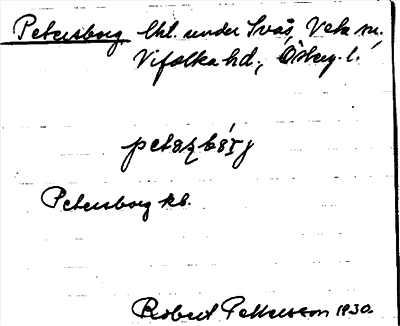 Petersborg lht. under Svås, Veta sn.
Vifolka hd., Österg. l.
petəʂbórj
Petersborg kb.
Robert Pettersson 1930.